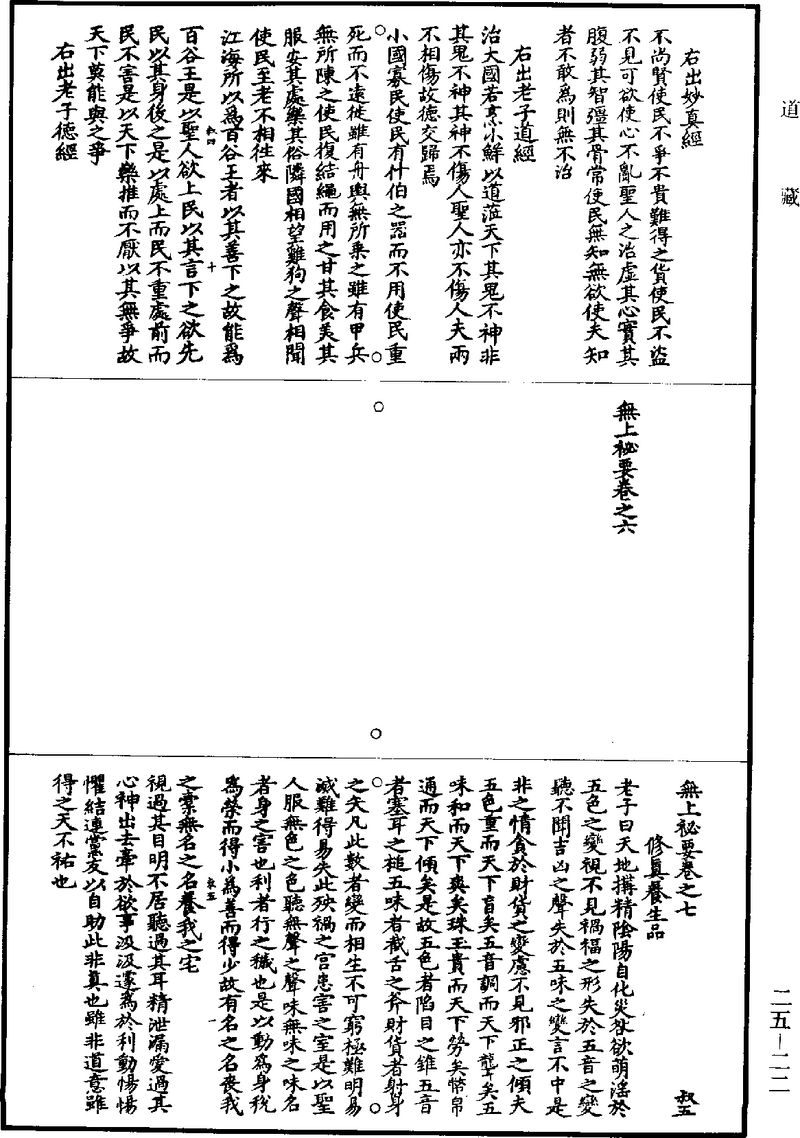 道藏
右出妙真經
不尚賢使民不爭不貴難得之貨使民不盜
不見可欲使心不亂聖人之治虛其心實其
腹弱其智彊其骨常使民無知無欲使夫知
者不敢為則無不治
右出老子道經
治大國若烹小鮮以道蒞天下其鬼不神非
其鬼不神其神不傷人聖人亦不傷人夫兩
不相傷故德交歸焉
小國寡民使民有什伯之器而不用使民重
死而不遠徙雖有舟輿無所乘之雖有甲兵
無所陳之使民復結繩而用之甘其食美其
服安其處樂其俗隣國相望雞狗之聲相聞
使民至老不相往來
江海所以為百谷王者以其善下之故能為
叔四 十
百谷王是以聖人欲上民以其言下之欲先
民以其身後之是以處上而民不重處前而
民不害是以天下樂推而不厭以其無爭故
天下莫能與之爭
右出老子德經
無上祕要卷之六
無上祕要卷之七
叔五
修真養生品
老子曰天地搆精陰陽自化災欲萌淫於
五色之變視不見禍福之形失於五音之變
聽不聞吉凶之聲失於五味之變言不中是
非之情貪於財貨之變慮不見邪正之傾夫
五色重而天下盲矣五音調而天下聾矣五
味和而天下爽矣珠玉貴而天下勞矣幣帛
通而天下傾矣是故五色者陷目之錐五音
者塞耳之槌五味者截舌之斧財貨者射身
之矢凡此數者變而相生不可窮極難明易
滅難得易失此殃禍之宫患害之室是以聖
人服無色之色聽無聲之聲味無味之味名
者身之害也利者行之穢也是以動為身稅
為榮而得小為善而得少故有名之名喪我
叔五 一
之槖無名之名養我之宅
視過其目明不居聽過其耳精泄漏愛過其
心神出去牽於欲事汲汲遽為於利動惕惕
懼結連黨友以自助此非真也雖非道意雖
得之天不祐也
二五—二二